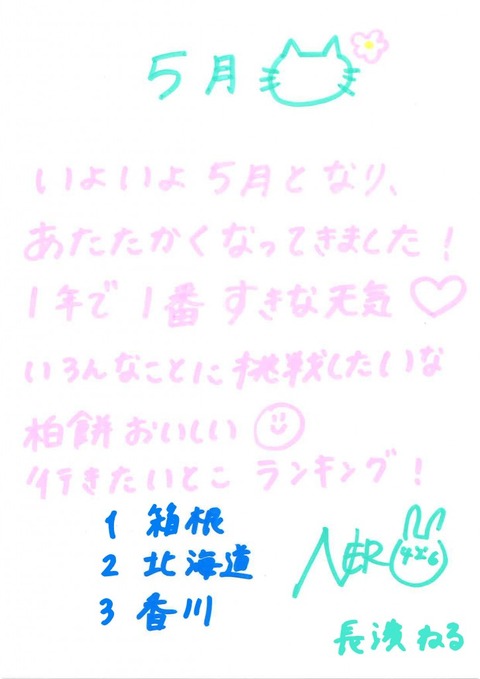 5月
いよいよ5月となり、
あたたかくなってきました!
1年で1番すきな天気♡
いろんなことに挑戦したいな
柏餅おいしい
行きたいとこランキング!
1 箱根
2 北海道
3 香川
NER
長濱ねる